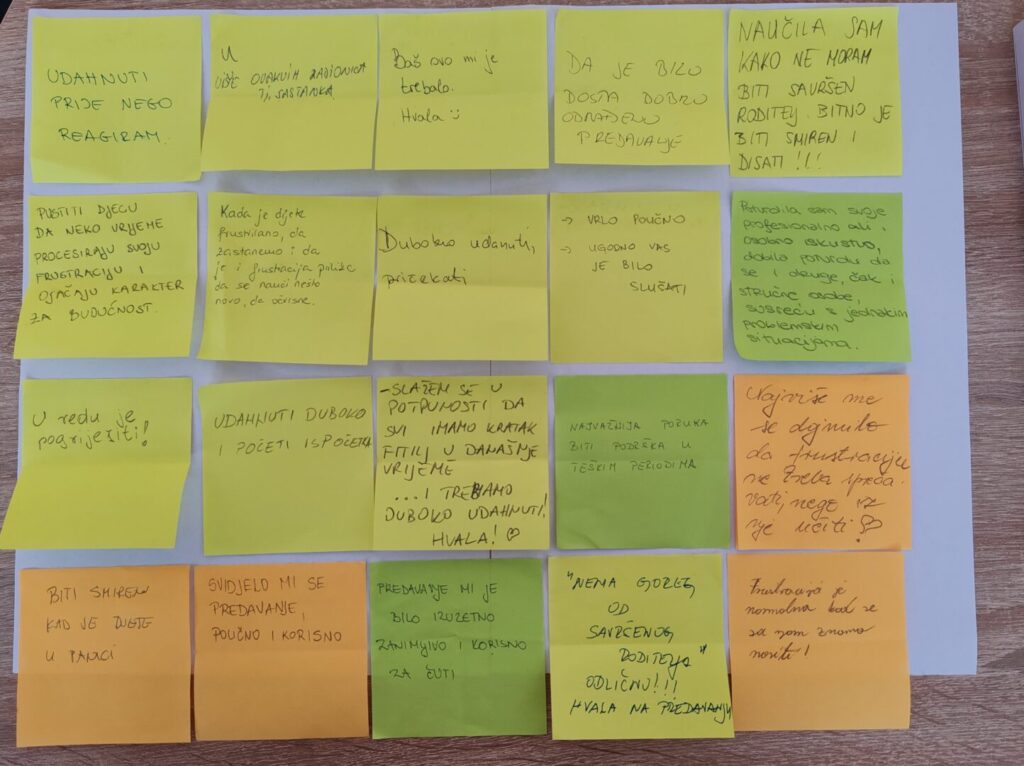 UDAHNUTI
PRIJE NEGO
REAGIRAM.
U
VIŠE OVAKVIH RADIONICA
TJ. SASTANKA
Baš ovo mi je
trebalo.
Hvala :)
DA JE BILO
DOSTA DOBRO
ODRAĐENO
PREDAVANJE
NAUČILA SAM
KAKO NE MORAM
BITI SAVRŠEN
RODITELJ. BITNO JE
BITI SMIREN I
DISATI !!!
PUSTITI DJECU
DA NEKO VRIJEME
PROCESIRAJU SVOJU
FRUSTRACIJU I
OJAČAJU KARAKTER
ZA BUDUĆNOST.
Kada je dijete
frustrirano, da
zastanemo i da
je i frustracija prilika
da se nauči nešto
novo, da očvrsne.
Duboko udahnuti,
pričekati
→ VRLO POUČNO
→ UGODNO VAS
JE BILO
SLUŠATI
Potvrdila sam svoje
profesionalno ali i
osobno iskustvo,
dobila potvrdu da
se i druge, čak i
stručne osobe,
susreću s jednakim
problemskim
situacijama.
U redu je
pogriješiti!
UDAHNUTI DUBOKO
I POČETI ISPOČETKA
-SLAŽEM SE U
POTPUNOSTI DA
SVI IMAMO KRATAK
FITILJ U DANAŠNJE
VRIJEME
...I TREBAMO
DUBOKO UDAHNUTI!
HVALA! ♡
NAJVAŽNIJA PORUKA
BITI PODRŠKA U
TEŠKIM PERIODIMA
Najviše me
se dojmilo
da frustraciju
ne treba
vati, nego iz
nje učiti! ♡
BITI SMIREN
KAD JE DIJETE
U PANICI
SVIDJELO MI SE
PREDAVANJE,
POUČNO I KORISNO
PREDAVANJE MI JE
BILO IZUZETNO
ZANIMLJIVO I KORISNO
ZA ČUTI
"NEMA GOREG
OD
SAVRŠENOG
RODITELJA"
ODLIČNO!!!
HVALA NA PREDAVANJU
Frustracija je
normalna kad se
sa njom znamo
nositi!